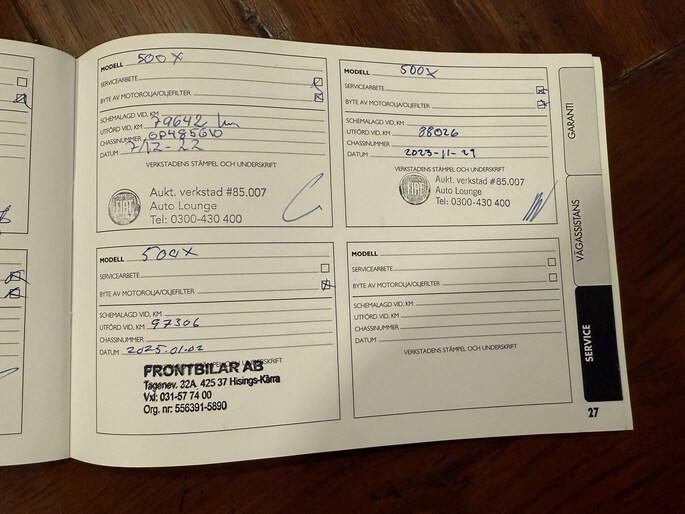 MODELL 500X
SERVICEARBETE
BYTE AV MOTOROLJA/OLJEFILTER
SCHEMALAGD VID, KM
UTFÖRD VID, KM 79642 km
CHASSINUMMER
DATUM 7/12-22
VERKSTADENS STÄMPEL OCH UNDERSKRIFT
FIAT
Aukt. verkstad #85.007
Auto Lounge
Tel: 0300-430 400
MODELL 500X
SERVICEARBETE
BYTE AV MOTOROLJA/OLJEFILTER
SCHEMALAGD VID, KM
UTFÖRD VID, KM 88026
CHASSINUMMER
DATUM 2023-11-29
VERKSTADENS STÄMPEL OCH UNDERSKRIFT
FIAT
Aukt. verkstad #85.007
Auto Lounge
Tel: 0300-430 400
MODELL 500X
SERVICEARBETE
BYTE AV MOTOROLJA/OLJEFILTER
SCHEMALAGD VID, KM
UTFÖRD VID, KM 97306
CHASSINUMMER
DATUM 2025.01.02
STÄMPEL OCH UNDERSKRIFT
FRONTBILAR AB
Tagenev. 32A, 425 37 Hisings-Kärra
Vxl: 031-57 74 00
Org. nr: 556391-5890
MODELL
SERVICEARBETE
BYTE AV MOTOROLJA/OLJEFILTER
SCHEMALAGD VID, KM
UTFÖRD VID, KM
CHASSINUMMER
DATUM
VERKSTADENS STÄMPEL OCH UNDERSKRIFT
GARANTI
VÄGASSISTANS
SERVICE
27